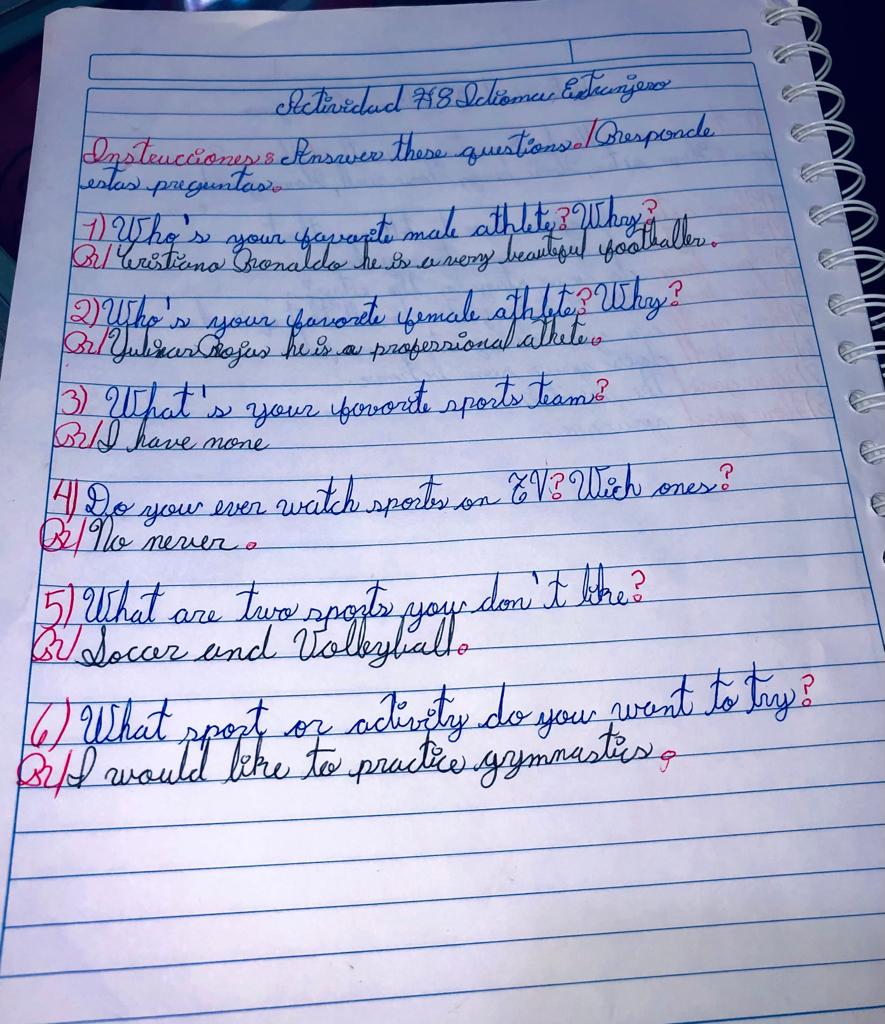 Actividad #8 Idioma Extranjero
Instrucciones: Answer these questions./Responde
estas preguntas.
1) Who's your favorite male athlete? Why?
R/ Cristiano Ronaldo he is a very beautiful footballer.
2) Who's your favorete female athlete? Why?
R/ Yulimar Rojas he is a professional athete.
3) What's your fovorite sports team?
R/ I have none
4) Do you ever watch sports on TV? Wich ones?
R/ No never.
5) What are two sports you don't like?
R/ Soccer and Volleyball.
6) What sport or activity do you want to try?
R/ I would like to practice gymnastics.